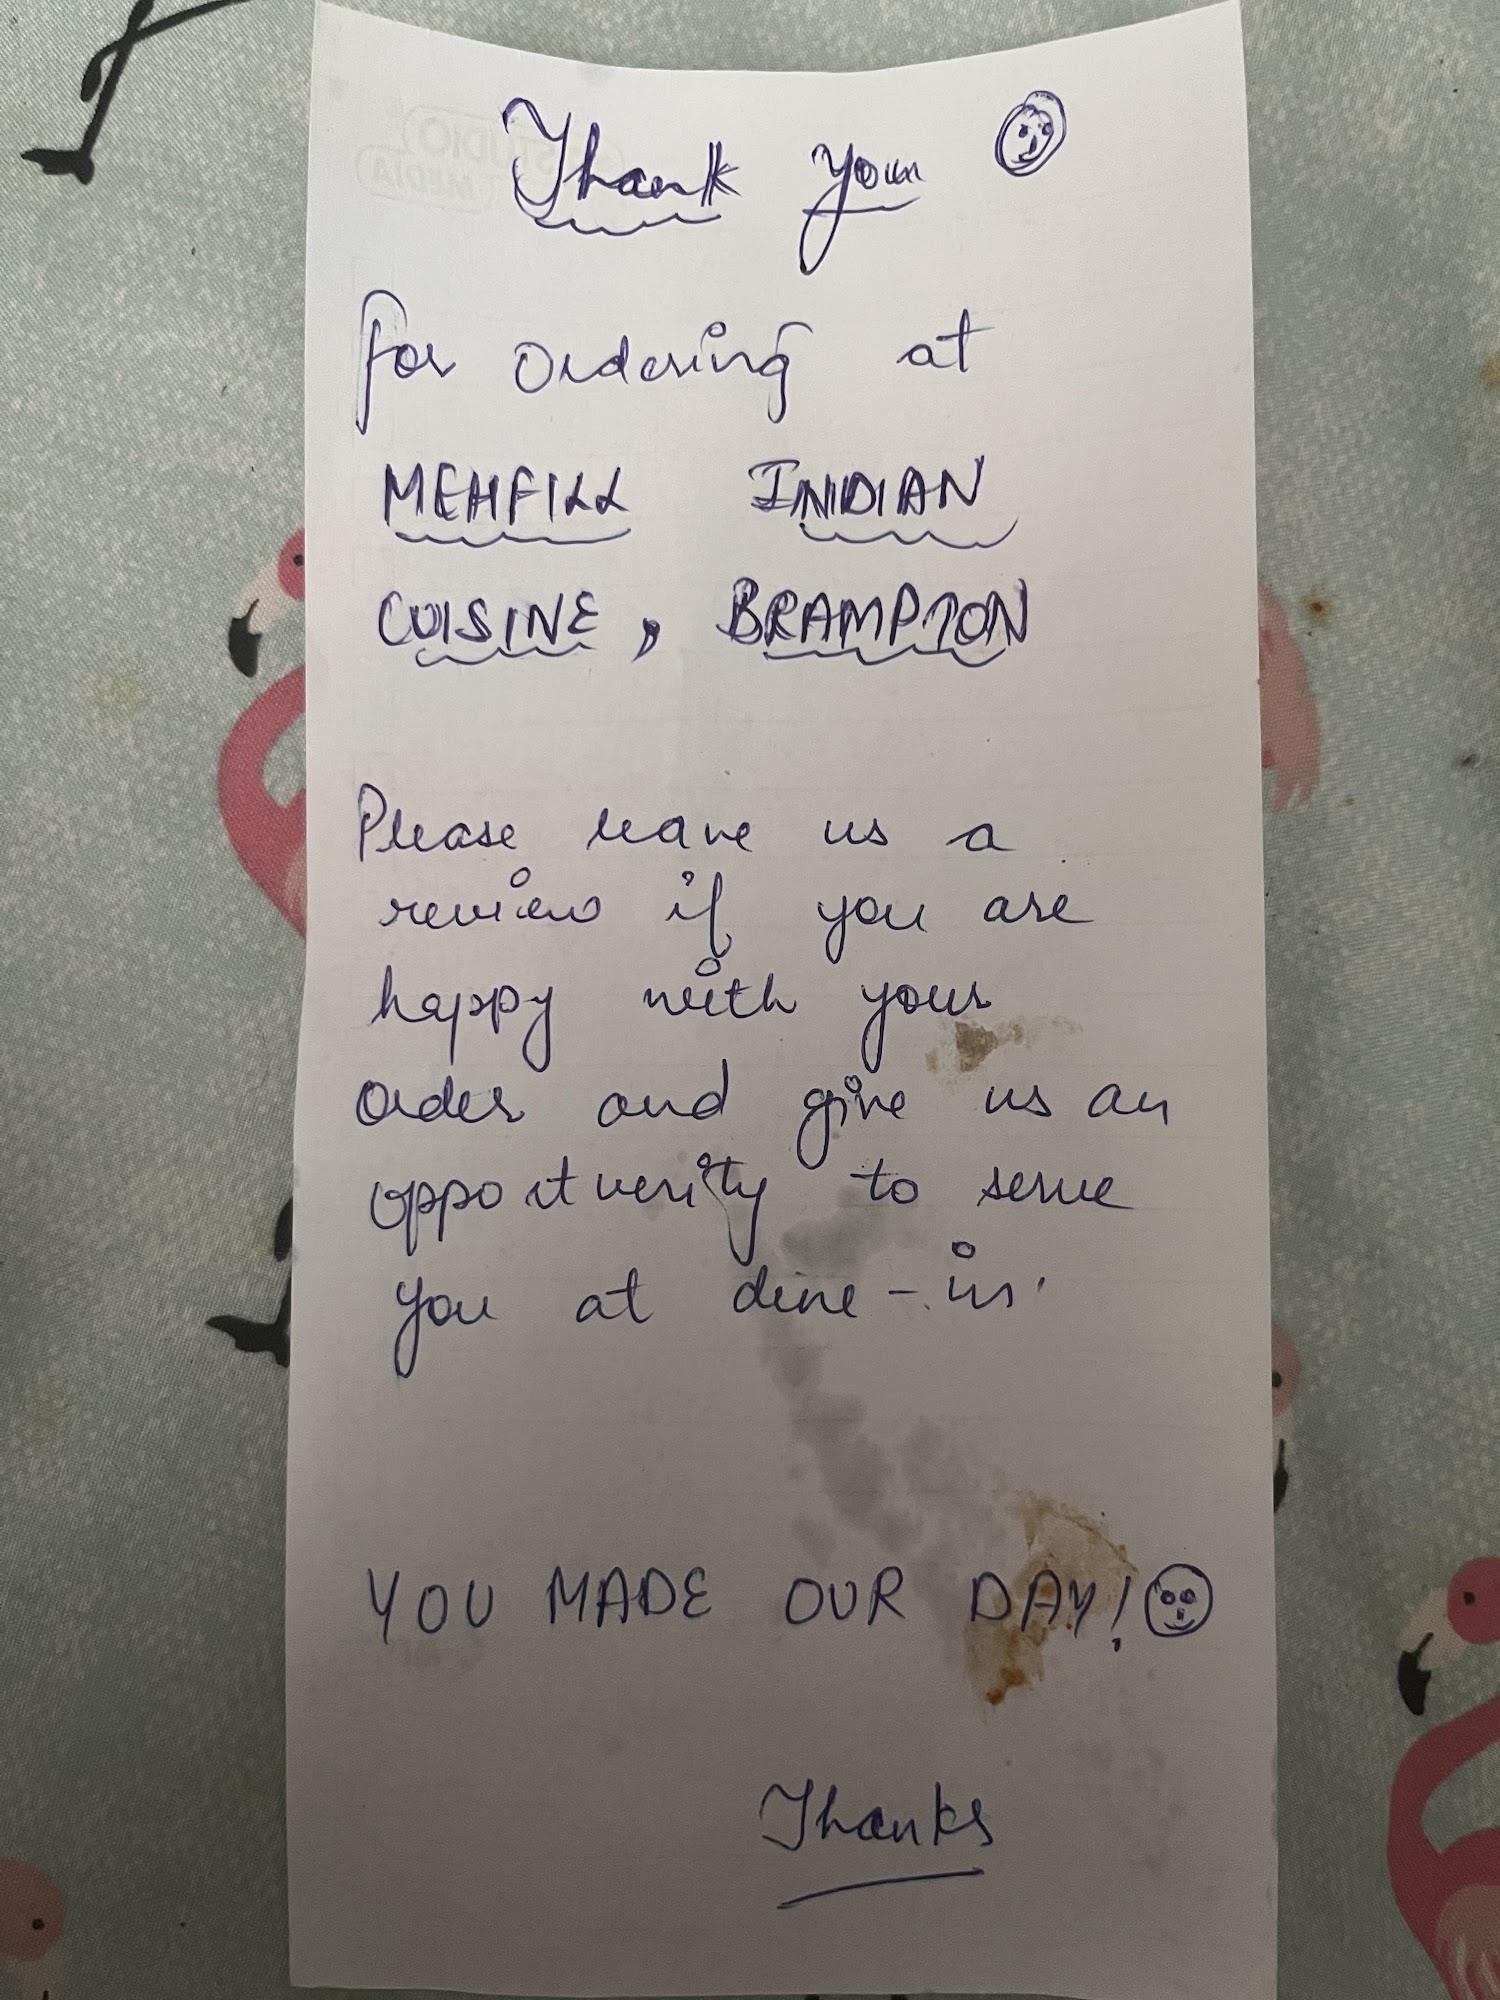 Thank you
for ordering at
MEHFILL INDIAN
CUISINE, BRAMPTON
Please leave us a
review if you are
happy with your
order and give us an
opportunity to serve
you at dine-in.
YOU MADE OUR DAY!
Thanks
STUDIO
MEDIA